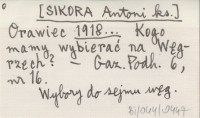 [SIKORA Antoni ks.]
Orawiec 1918... Kogo
mamy wybierać na Węg-
rzech? - Gaz. Podh. 6,
nr 16.
Wybory do sejmu węg.